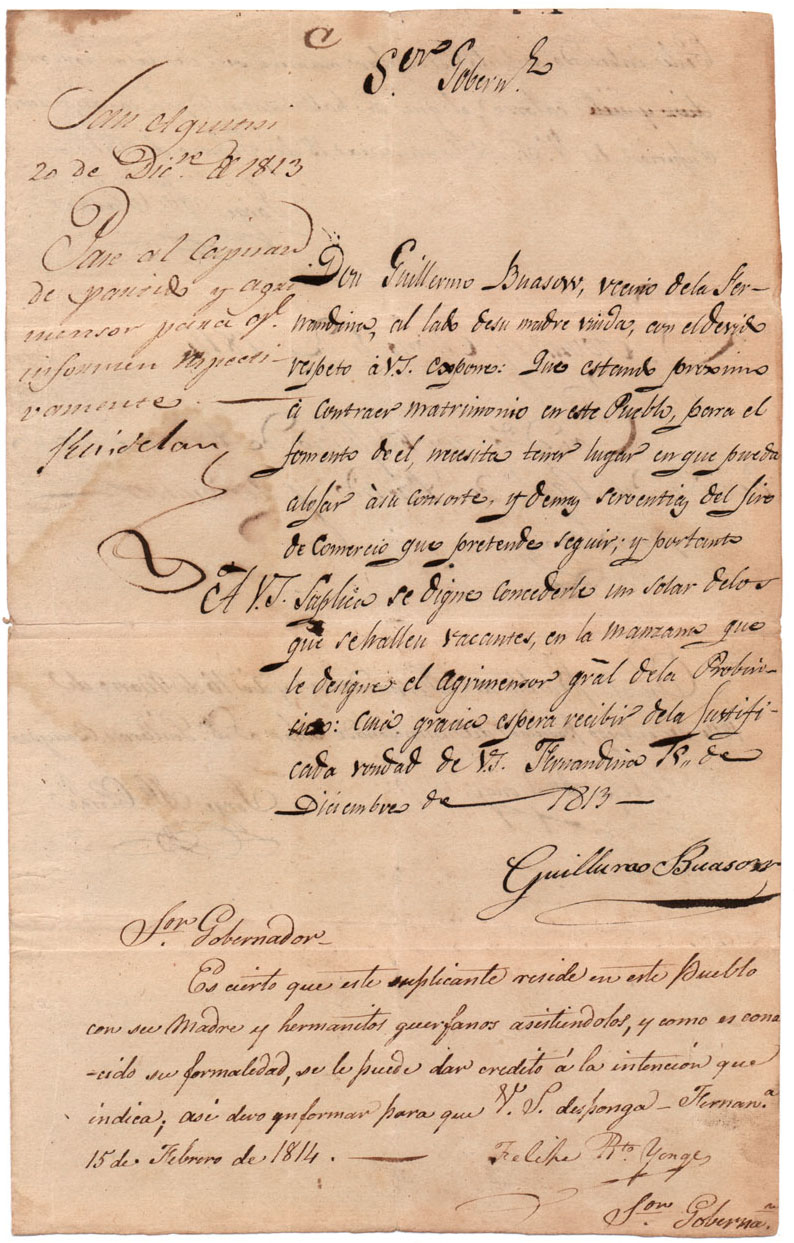 S.or Gobern.r
San Agustin
20 de Dic.re de 1813
Pase al Capitan
de partido y agri
mensor para q.e
informen respecti-
vamente.
Kindelan
Don Guillermo Buasow, vecino de la Fer-
nandina, al lado desu madre viuda, con el devido
respeto à V.S. expone: Que estando proximo
à contraer matrimonio en este Pueblo, para el
fomento de el, necesita tener lugar en que pueda
alojar àsu consorte, y demas serventias del Jiro
de Comercio que pretende seguir; y portanto
A V.S. Suplica se digne concederle un solar delos
que sehallen vacantes, en la manzana que
le designe el Agrimensor gral dela Probin-
cia: cuia gracia espera recibir dela Justifi-
cada vondad de V.S. Fernandina de
Diciembre de 1813
Guillermo Buasow
S.or Gobernador
Es cierto que este suplicante reside en este Pueblo
con su Madre y hermanitos guerfanos asistiendolos, y como es cono
-cido su formaledad, se le puede dar credito á la intención que
indica; asi devo ynformar para que V. S. desponga - Fernan.a
15 de Febrero de 1814.
Felipe R.to Yonge
S.or Goberna.r